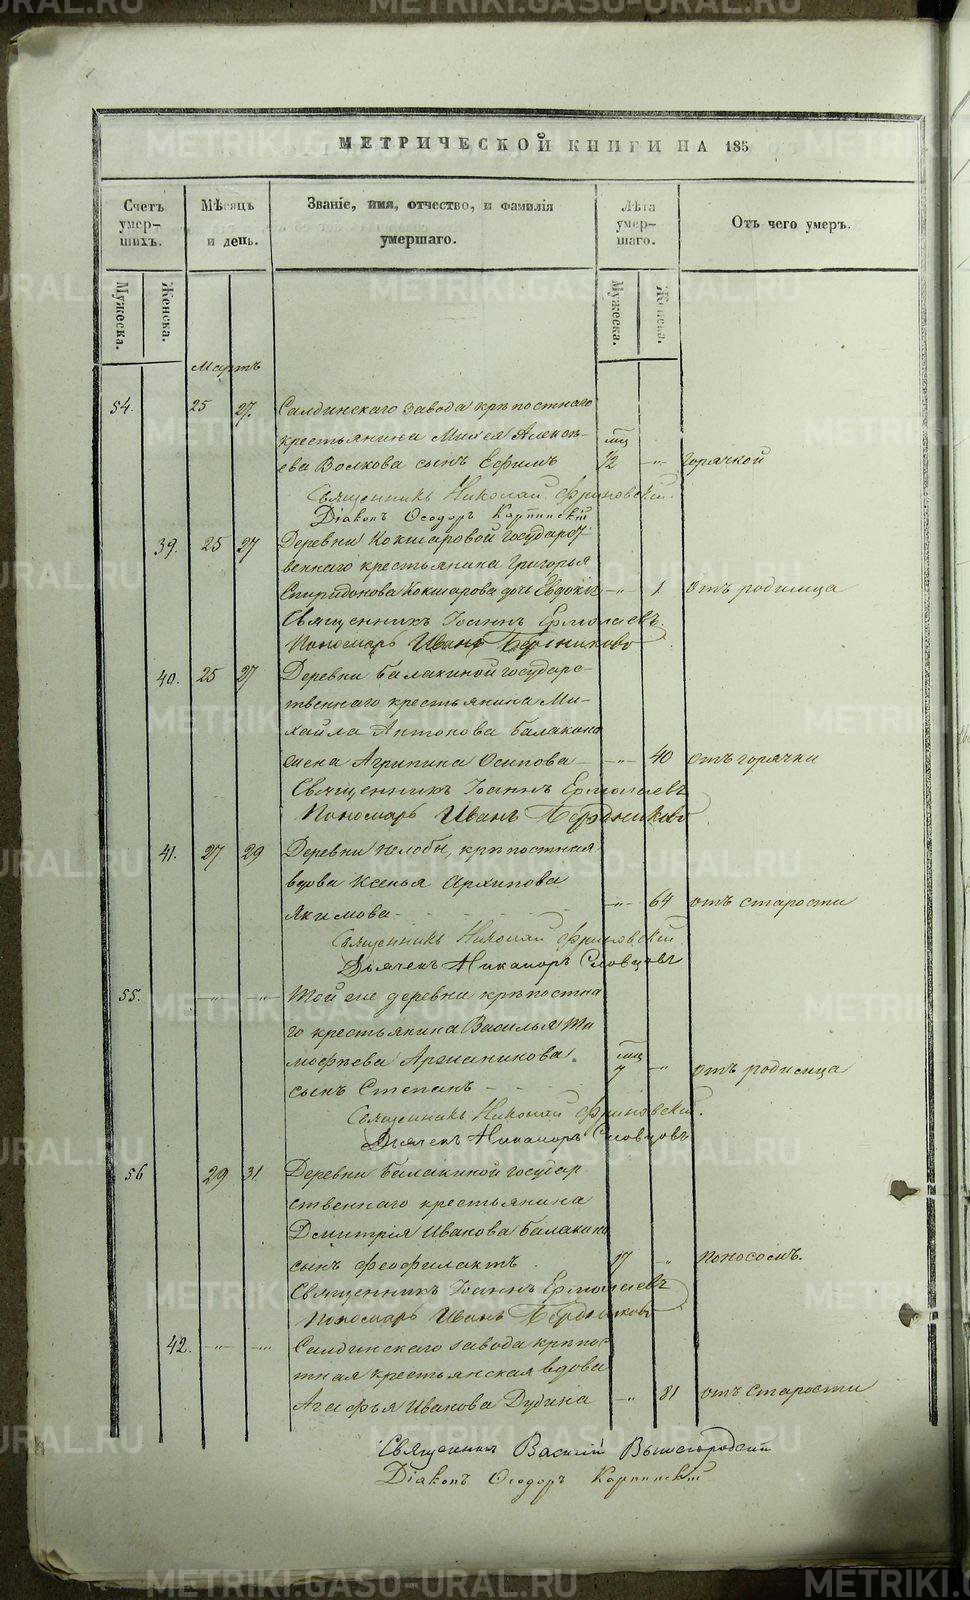 МЕТРИЧЕСКОЙ КНИГИ НА 185
Счетъ умер-шихъ. Мѣсяцъ и день. Званіе, имя, отчество, и фамилія умершаго. Лѣта умер-шаго. Отъ чего умеръ.
Мужеска. Женска. Мужеска. Женска.
Мартъ
54. 25 27. Салдинскаго завода крѣпостнаго
крестьянина Михея Алексѣ-
ева Волкова сынъ Ефимъ мц 1/2 -"- горячкой
Священникъ Николай Фриновскій.
Діаконъ Ѳеодоръ Карпинскій
39. 25 27 Деревни Кокшаровой государст-
веннаго крестьянина Григорья
Спиридонова Кокшарова дочь Евдокія -"- 1 отъ родимца
Священникъ Іоаннъ Ермолаевъ.
Пономарь Иванъ Бердниковъ
40. 25 27 Деревни Балакиной государс-
твеннаго крестьянина Ми-
хайла Антонова Балакина
жена Агрипина Осипова -"- 40 отъ горячки
Священникъ Іоаннъ Ермолаевъ
Пономарь Иванъ Бердниковъ
41. 27 29 Деревни Нелобы, крѣпостная
вдова Ксенья Архипова
Якимова - -"- 64 отъ старости
Священникъ Николай Фриновскій.
Дьячекъ Никаноръ Словцовъ
55. -"- -"- Той же деревни крѣпостна
го крестьянина Василья Ти
мофѣева Аржанникова
сынъ Степанъ - мц 7 -"- отъ родимца
Священникъ Николай Фриновскій.
Дьячекъ Никаноръ Словцовъ
56 29 31. Деревни Балакиной государ
ственнаго крестьянина
Дмитрія Иванова Балакина
сынъ Феофилактъ. 17 " поносомъ.
Священникъ Іоаннъ Ермолаевъ
Пономарь Иванъ Бердниковъ
42. -"- -"- Салдинскаго завода крѣпос-
тная крестьянская вдова
Агафья Иванова Дудина -"- 81 отъ старости
Священникъ Василій Вышегородскій
Діаконъ Ѳеодоръ Карпинскій
METRIKI.GASO-URAL.RU